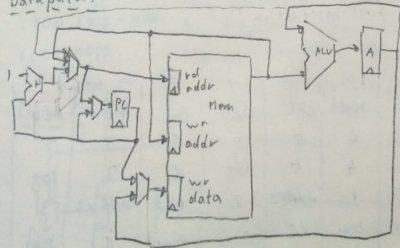 Datapath:
1
+
PC
rd
addr
Mem
wr
addr
wr
data
ALU
A